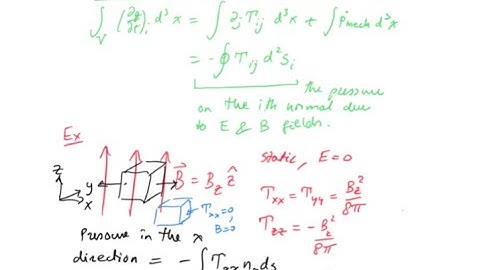 ∫_V (∂g/∂t)_i d³x = ∫ ∂_j T_ij d³x + ∫ ṗ_mech d³x
= -∮ T_ij d²s_i
the pressure
on the ith normal due
to E & B fields.
Ex
z y x
B⃗ = B_z ẑ
static, E=0
T_xx = T_yy = B_z²/8π
T_xx=0,
B=0
T_zz = -B_z²/8π
Pressure in the x
direction = -∫T_xx n_x ds